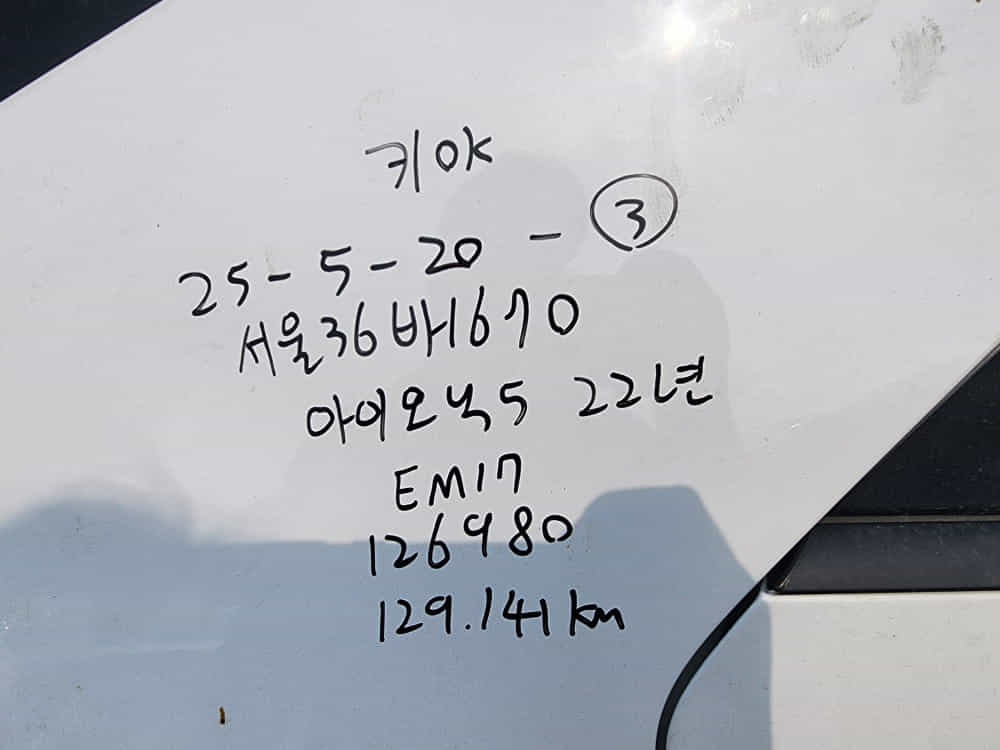 키OK
25-5-20 - ③
서울36바1670
아이오닉5 22년
EM17
126980
129.141km